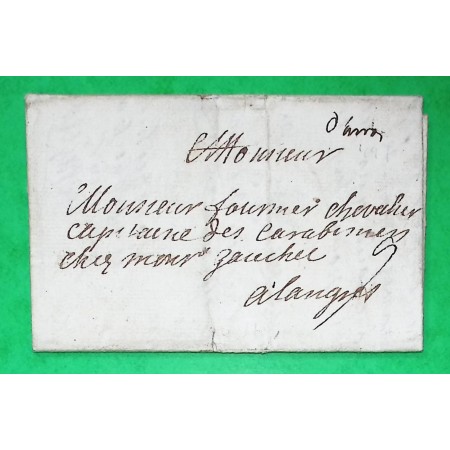 Monsieur
Monsieur fournier chevalier
capitaine des carabiniers
chez monr
alangres